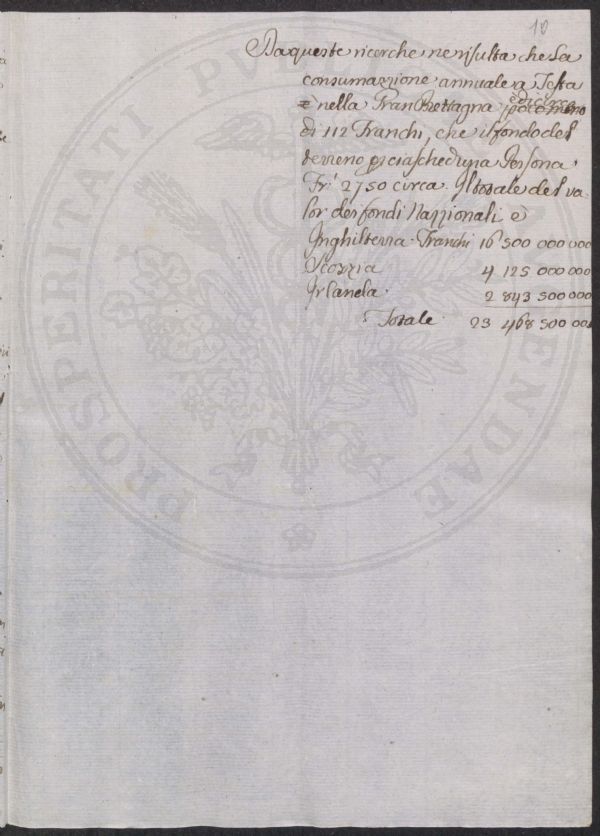 10
Da queste ricerche ne risulta che La
consumazzione annuale a Testa
è nella Gran Brettagna poco meno
di 112 Franchi, che il fondo del
terreno per ciascheduna Persona
Fr.i 2750 circa. Il totale del va=
lor dei fondi Nazzionali è
Inghilterra. Franchi 16 500 000 000
Scozzia 4 125 000 000
Irlanda. 2 843 500 000
Totale 23 468 500 000
PROSPERITATI PUBLICAE AUGENDAE